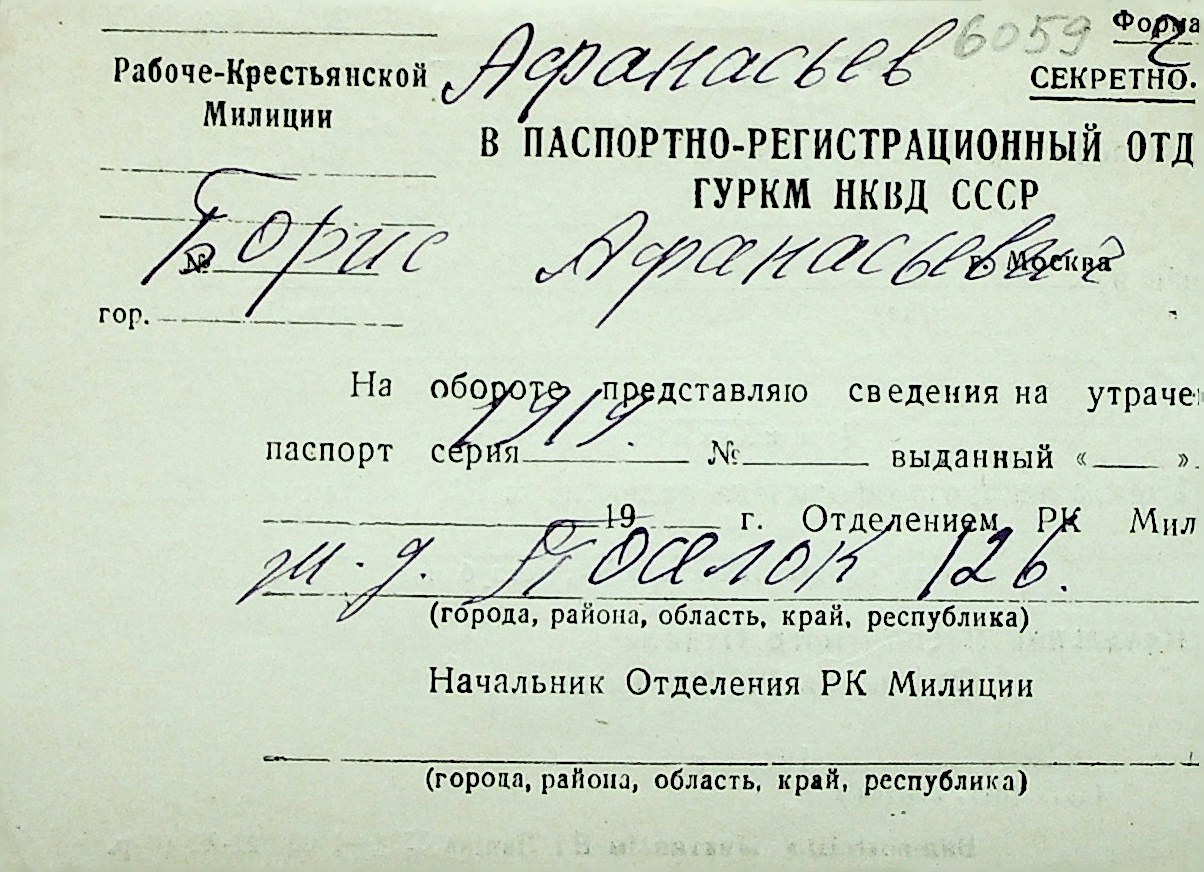 Афанасьев 6059 Форма
Рабоче-Крестьянской СЕКРЕТНО.
Милиции
В ПАСПОРТНО-РЕГИСТРАЦИОННЫЙ ОТД
ГУРКМ НКВД СССР
Борис Афанасьевич
№ г. Москва
гор.
На обороте представляю сведения на утрачен
1919.
паспорт серия № выданный « ».
19 г. Отделением РК Мил
ж.д. Поселок 126.
(города, района, область, край, республика)
Начальник Отделения РК Милиции
(города, района, область, край, республика)